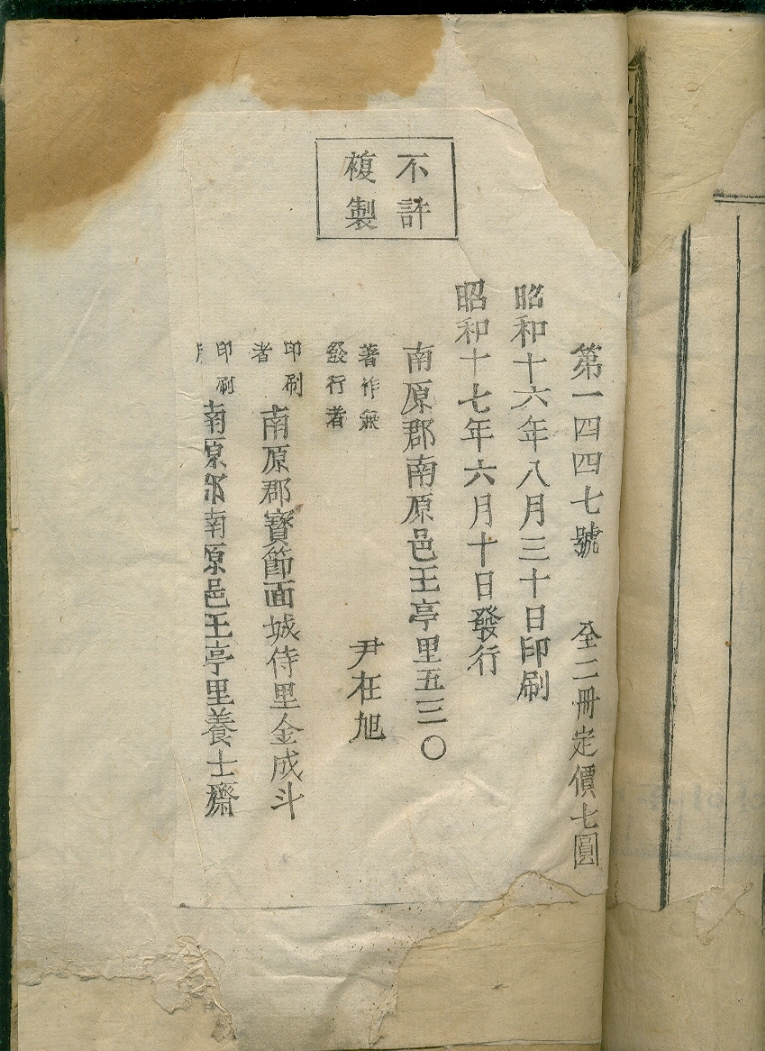 不許
複製
第一四四七號 全二冊定價七圓
昭和十六年八月三十日印刷
昭和十七年六月十日發行
南原郡南原邑王亭里五三〇
著作兼
發行者 尹在旭
印刷
者 南原郡寶節面城侍里金成斗
印刷
南原郡南原邑王亭里養士齋